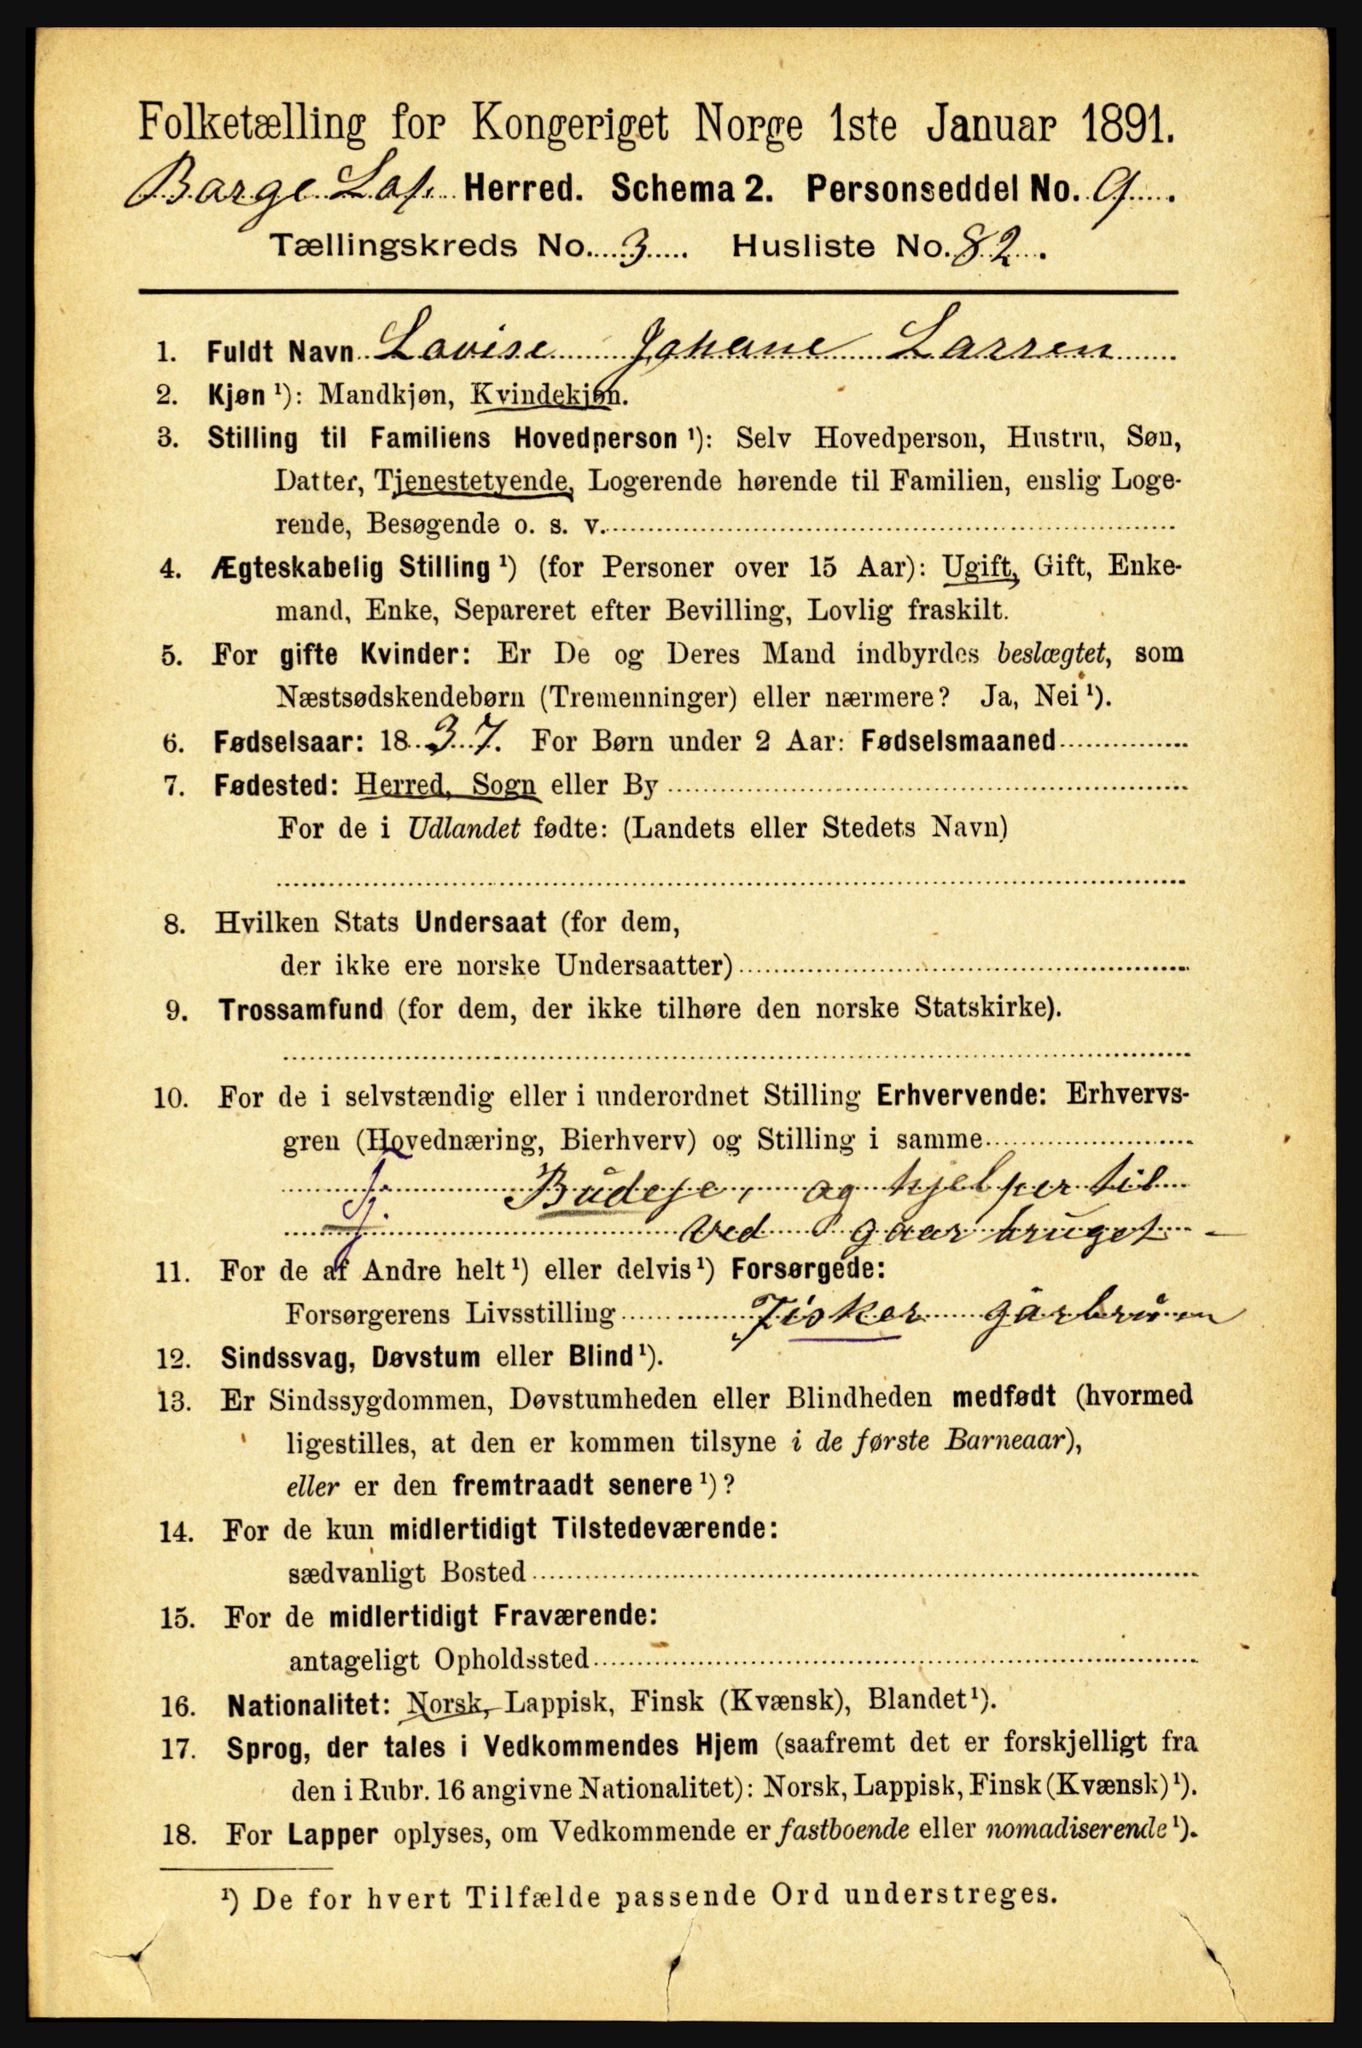 Folketælling for Kongeriget Norge 1ste Januar 1891.
Barge Lof. Herred. Schema 2. Personseddel No. 9.
Tællingskreds No. 3. Husliste No. 82.
1. Fuldt Navn Lovise Johane Larsen
2. Kjøn ¹): Mandkjøn, Kvindekjøn.
3. Stilling til Familiens Hovedperson ¹): Selv Hovedperson, Hustru, Søn,
Datter, Tjenestetyende, Logerende hørende til Familien, enslig Loge-
rende, Besøgende o. s. v.
4. Ægteskabelig Stilling ¹) (for Personer over 15 Aar): Ugift, Gift, Enke-
mand, Enke, Separeret efter Bevilling, Lovlig fraskilt.
5. For gifte Kvinder: Er De og Deres Mand indbyrdes beslægtet, som
Næstsødskendebørn (Tremenninger) eller nærmere? Ja, Nei ¹).
6. Fødselsaar: 1837. For Børn under 2 Aar: Fødselsmaaned
7. Fødested: Herred, Sogn eller By
For de i Udlandet fødte: (Landets eller Stedets Navn)
8. Hvilken Stats Undersaat (for dem,
der ikke ere norske Undersaatter)
9. Trossamfund (for dem, der ikke tilhøre den norske Statskirke).
10. For de i selvstændig eller i underordnet Stilling Erhvervende: Erhvervs-
gren (Hovednæring, Bierhverv) og Stilling i samme
Budeje, og hjelper til
ved gaarbruget
11. For de af Andre helt ¹) eller delvis ¹) Forsørgede:
Forsørgerens Livsstilling Fisker
12. Sindssvag, Døvstum eller Blind ¹).
13. Er Sindssygdommen, Døvstumheden eller Blindheden medfødt (hvormed
ligestilles, at den er kommen tilsyne i de første Barneaar),
eller er den fremtraadt senere ¹)?
14. For de kun midlertidigt Tilstedeværende:
sædvanligt Bosted
15. For de midlertidigt Fraværende:
antageligt Opholdssted
16. Nationalitet: Norsk, Lappisk, Finsk (Kvænsk), Blandet ¹).
17. Sprog, der tales i Vedkommendes Hjem (saafremt det er forskjelligt fra
den i Rubr. 16 angivne Nationalitet): Norsk, Lappisk, Finsk (Kvænsk) ¹).
18. For Lapper oplyses, om Vedkommende er fastboende eller nomadiserende ¹).
¹) De for hvert Tilfælde passende Ord understreges.